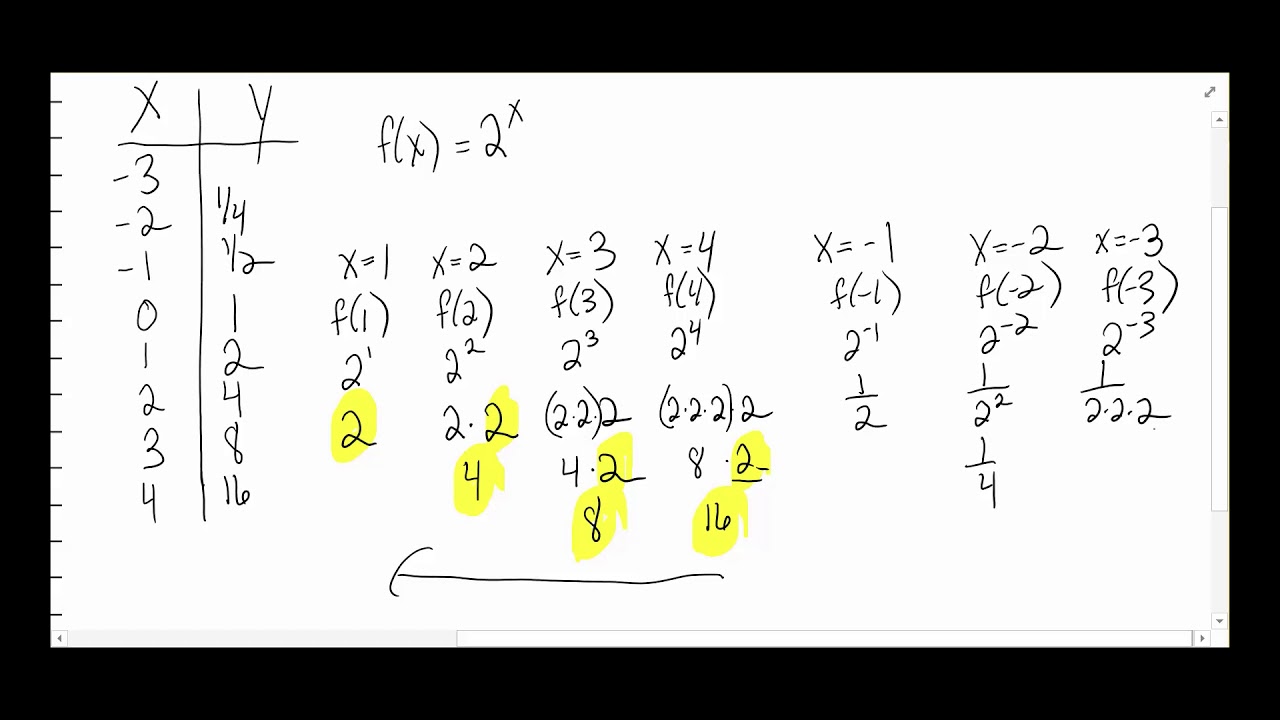 X Y
-3
-2 1/4
-1 1/2
0 1
1 2
2 4
3 8
4 16
f(x) = 2^x
x=1 x=2 x=3 x=4 x=-1 x=-2 x=-3
f(1) f(2) f(3) f(4) f(-1) f(-2) f(-3)
2^1 2^2 2^3 2^4 2^-1 2^-2 2^-3
2 2·2 (2·2)·2 (2·2·2)·2 1/2 1/2^2 1/2·2·2
4 4·2 8·2 1/4
8 16